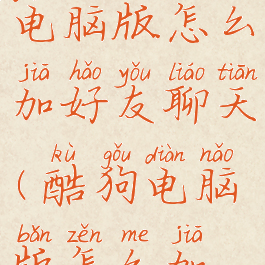 电脑版怎么
jiā hǎo yǒu liáo tiān
加好友聊天
kù gǒu diàn nǎo
(酷狗电脑
bǎn zěn me jiā
版怎么加